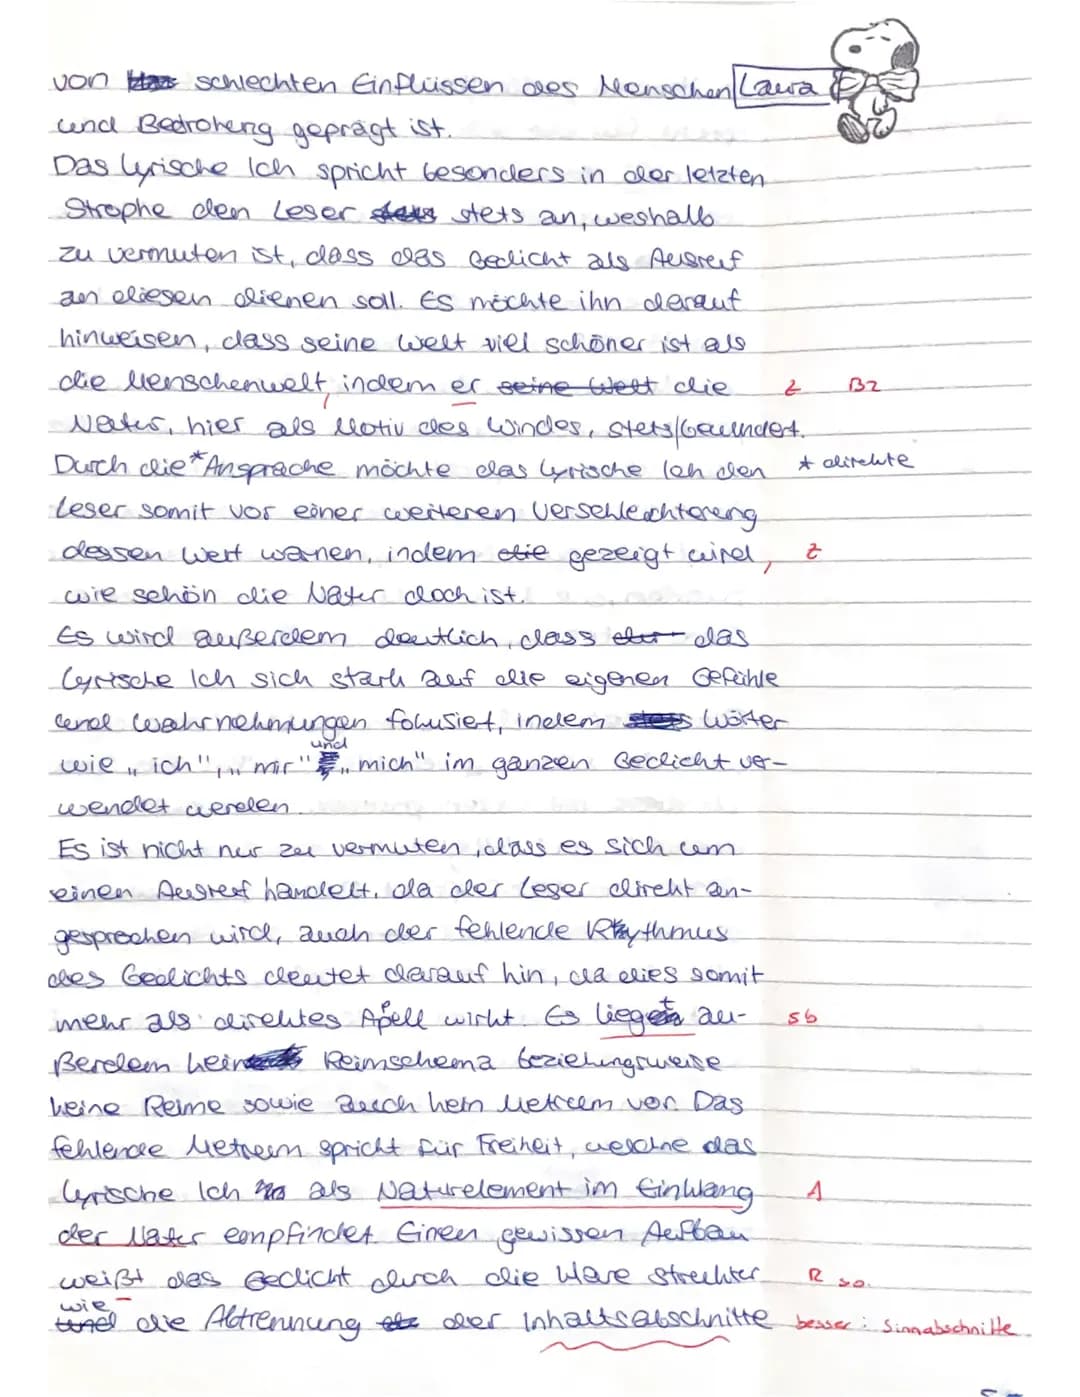 von schlechten Einflüssen des Menschen Laura
und Bedrohung geprägt ist.
Das lyrische Ich spricht besonders in der letzten
Strophe den Leser stets an, weshalb
zu vermuten ist, dass das Gedicht als Ausruf
an diesen dienen soll. Es möchte ihn darauf
hinweisen, dass seine Welt viel schöner ist als
die Menschenwelt, indem er seine Welt die Z Bz
Natur, hier als Motiv des Windes, stets bewundert.
Durch die *Ansprache möchte das lyrische Ich den * direkte
Leser somit vor einer weiteren Verschlechterung
dessen Wert warnen, indem die gezeigt wird, Z
wie schön die Natur doch ist.
Es wird außerdem deutlich, dass der das
lyrische Ich sich stark auf die eigenen Gefühle
und Wahrnehmungen fokusiert, indem stets Wörter
wie „ich", „mir" und „mich" im ganzen Gedicht ver-
wendet werden.
Es ist nicht nur zu vermuten, dass es sich um
einen Ausruf handelt, da der Leser direkt an-
gesprochen wird, auch der fehlende Rhythmus
des Gedichts deutet darauf hin, da dies somit
mehr als direktes Apell wirkt. Es liegt au- Sb
ßerdem kein Reimschema beziehungsweise
keine Reime sowie auch kein Metrum vor. Das
fehlende Metrum spricht für Freiheit, welche das
lyrische Ich als Naturelement im Einklang A
der Natur empfindet. Einen gewissen Aufbau
weißt das Gedicht durch die klare Struktur R so.
wie
und die Abtrennung der Inhaltsabschnitte besser: Sinnabschnitte